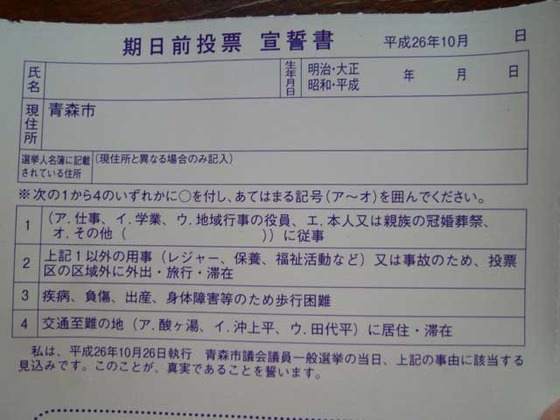 期日前投票 宣誓書 平成26年10月 日
氏名
生年月日 明治・大正 昭和・平成 年 月 日
現住所 青森市
選挙人名簿に記載されている住所 (現住所と異なる場合のみ記入)
※次の1から4のいずれかに○を付し、あてはまる記号(ア〜オ)を囲んでください。
1 (ア.仕事、イ.学業、ウ.地域行事の役員、エ.本人又は親族の冠婚葬祭、
オ.その他( ))に従事
2 上記1以外の用事(レジャー、保養、福祉活動など)又は事故のため、投票
区の区域外に外出・旅行・滞在
3 疾病、負傷、出産、身体障害等のため歩行困難
4 交通至難の地(ア.酸ヶ湯、イ.沖上平、ウ.田代平)に居住・滞在
私は、平成26年10月26日執行 青森市議会議員一般選挙の当日、上記の事由に該当する
見込みです。このことが、真実であることを誓います。